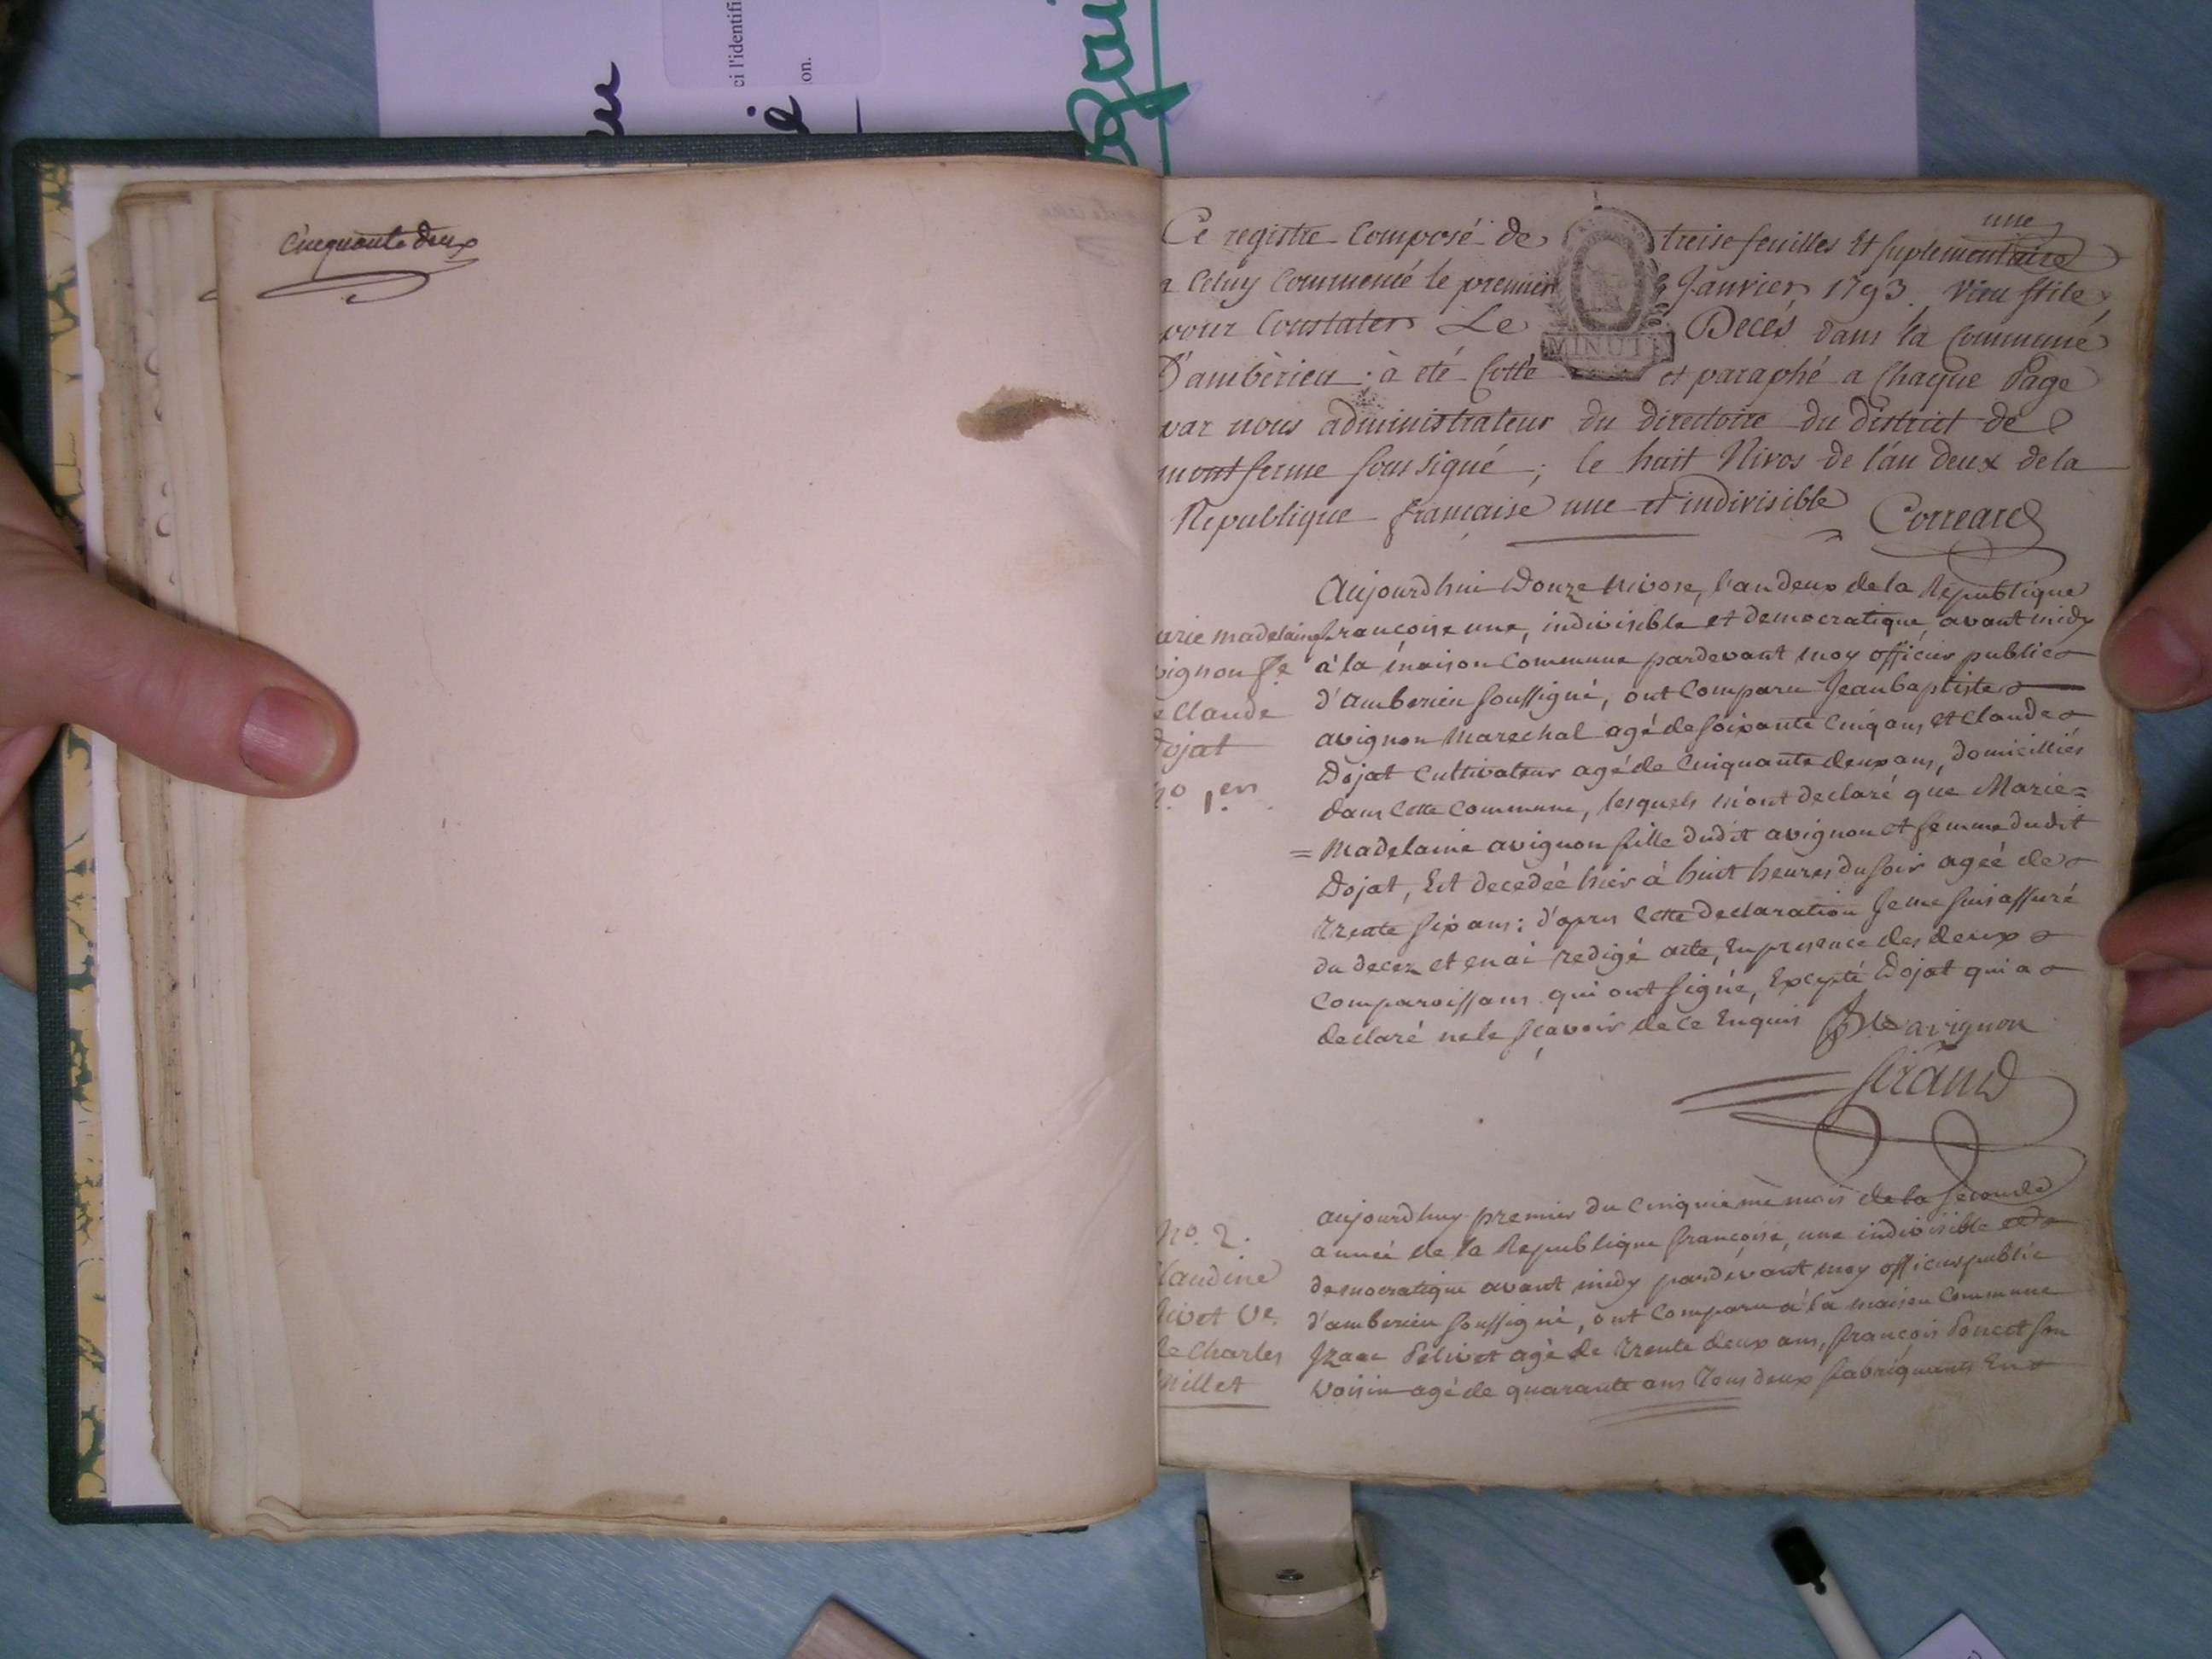 ci l'identifi
on.
Cinquante deux
Ce registre Composé de treise feuilles Et suplementaire une
a Celuy Commencé le premier Janvier 1793. vieu stile
pour Constater Le Decès dans la Commune
D'ambèrieu ; à eté Cotté et paraphé a Chaque Page
par nous administrateur du directoire du district de
montferme soussigné ; le huit Nivos de l'an deux de la
Republique française une et indivisible Correard
MINUTE
arie madelaine
vignon fe
e Claude
Dojat
no 1er.
Aujourdhui Douze nivose, l'an deux de la Republique
françoise une, indivisible et democratique, avant midy
à la maison Commune pardevant moy officier public
d'amberieu soussigné, ont Comparu Jean baptiste
avignon marechal agé de soixante Cinq ans et Claude
Dojat Cultivateur agé de Cinquante deux ans, domicilliés
dans Cette Commune, lesquels m'ont declaré que Marie=
=Madelaine avignon fille dudit avignon et femme dudit
Dojat, Est decedeé hier à huit heures du soir ageé de
trente six ans : d'aprés Cette declaration Je me suis assuré
du decez et en ai redigé acte, En presence des deux
Comparoissans qui ont signé, Excepté Dojat qui a
declaré ne le sçavoir de ce Enquis JBte avignon
Girand
No. 2.
laudine
livet Ve.
de Charles
millet
aujourdhuy premier du Cinquieme mois de la seconde
anneé de la Republique françoise, une indivisible et
democratique avant midy pardevant moy officier public
d'amberieu soussigné, ont Comparu à la maison Commune
Izaac Pelivet agé de trente deux ans, françois Poncet son
voisin agé de quarante ans Tous deux fabriquants En